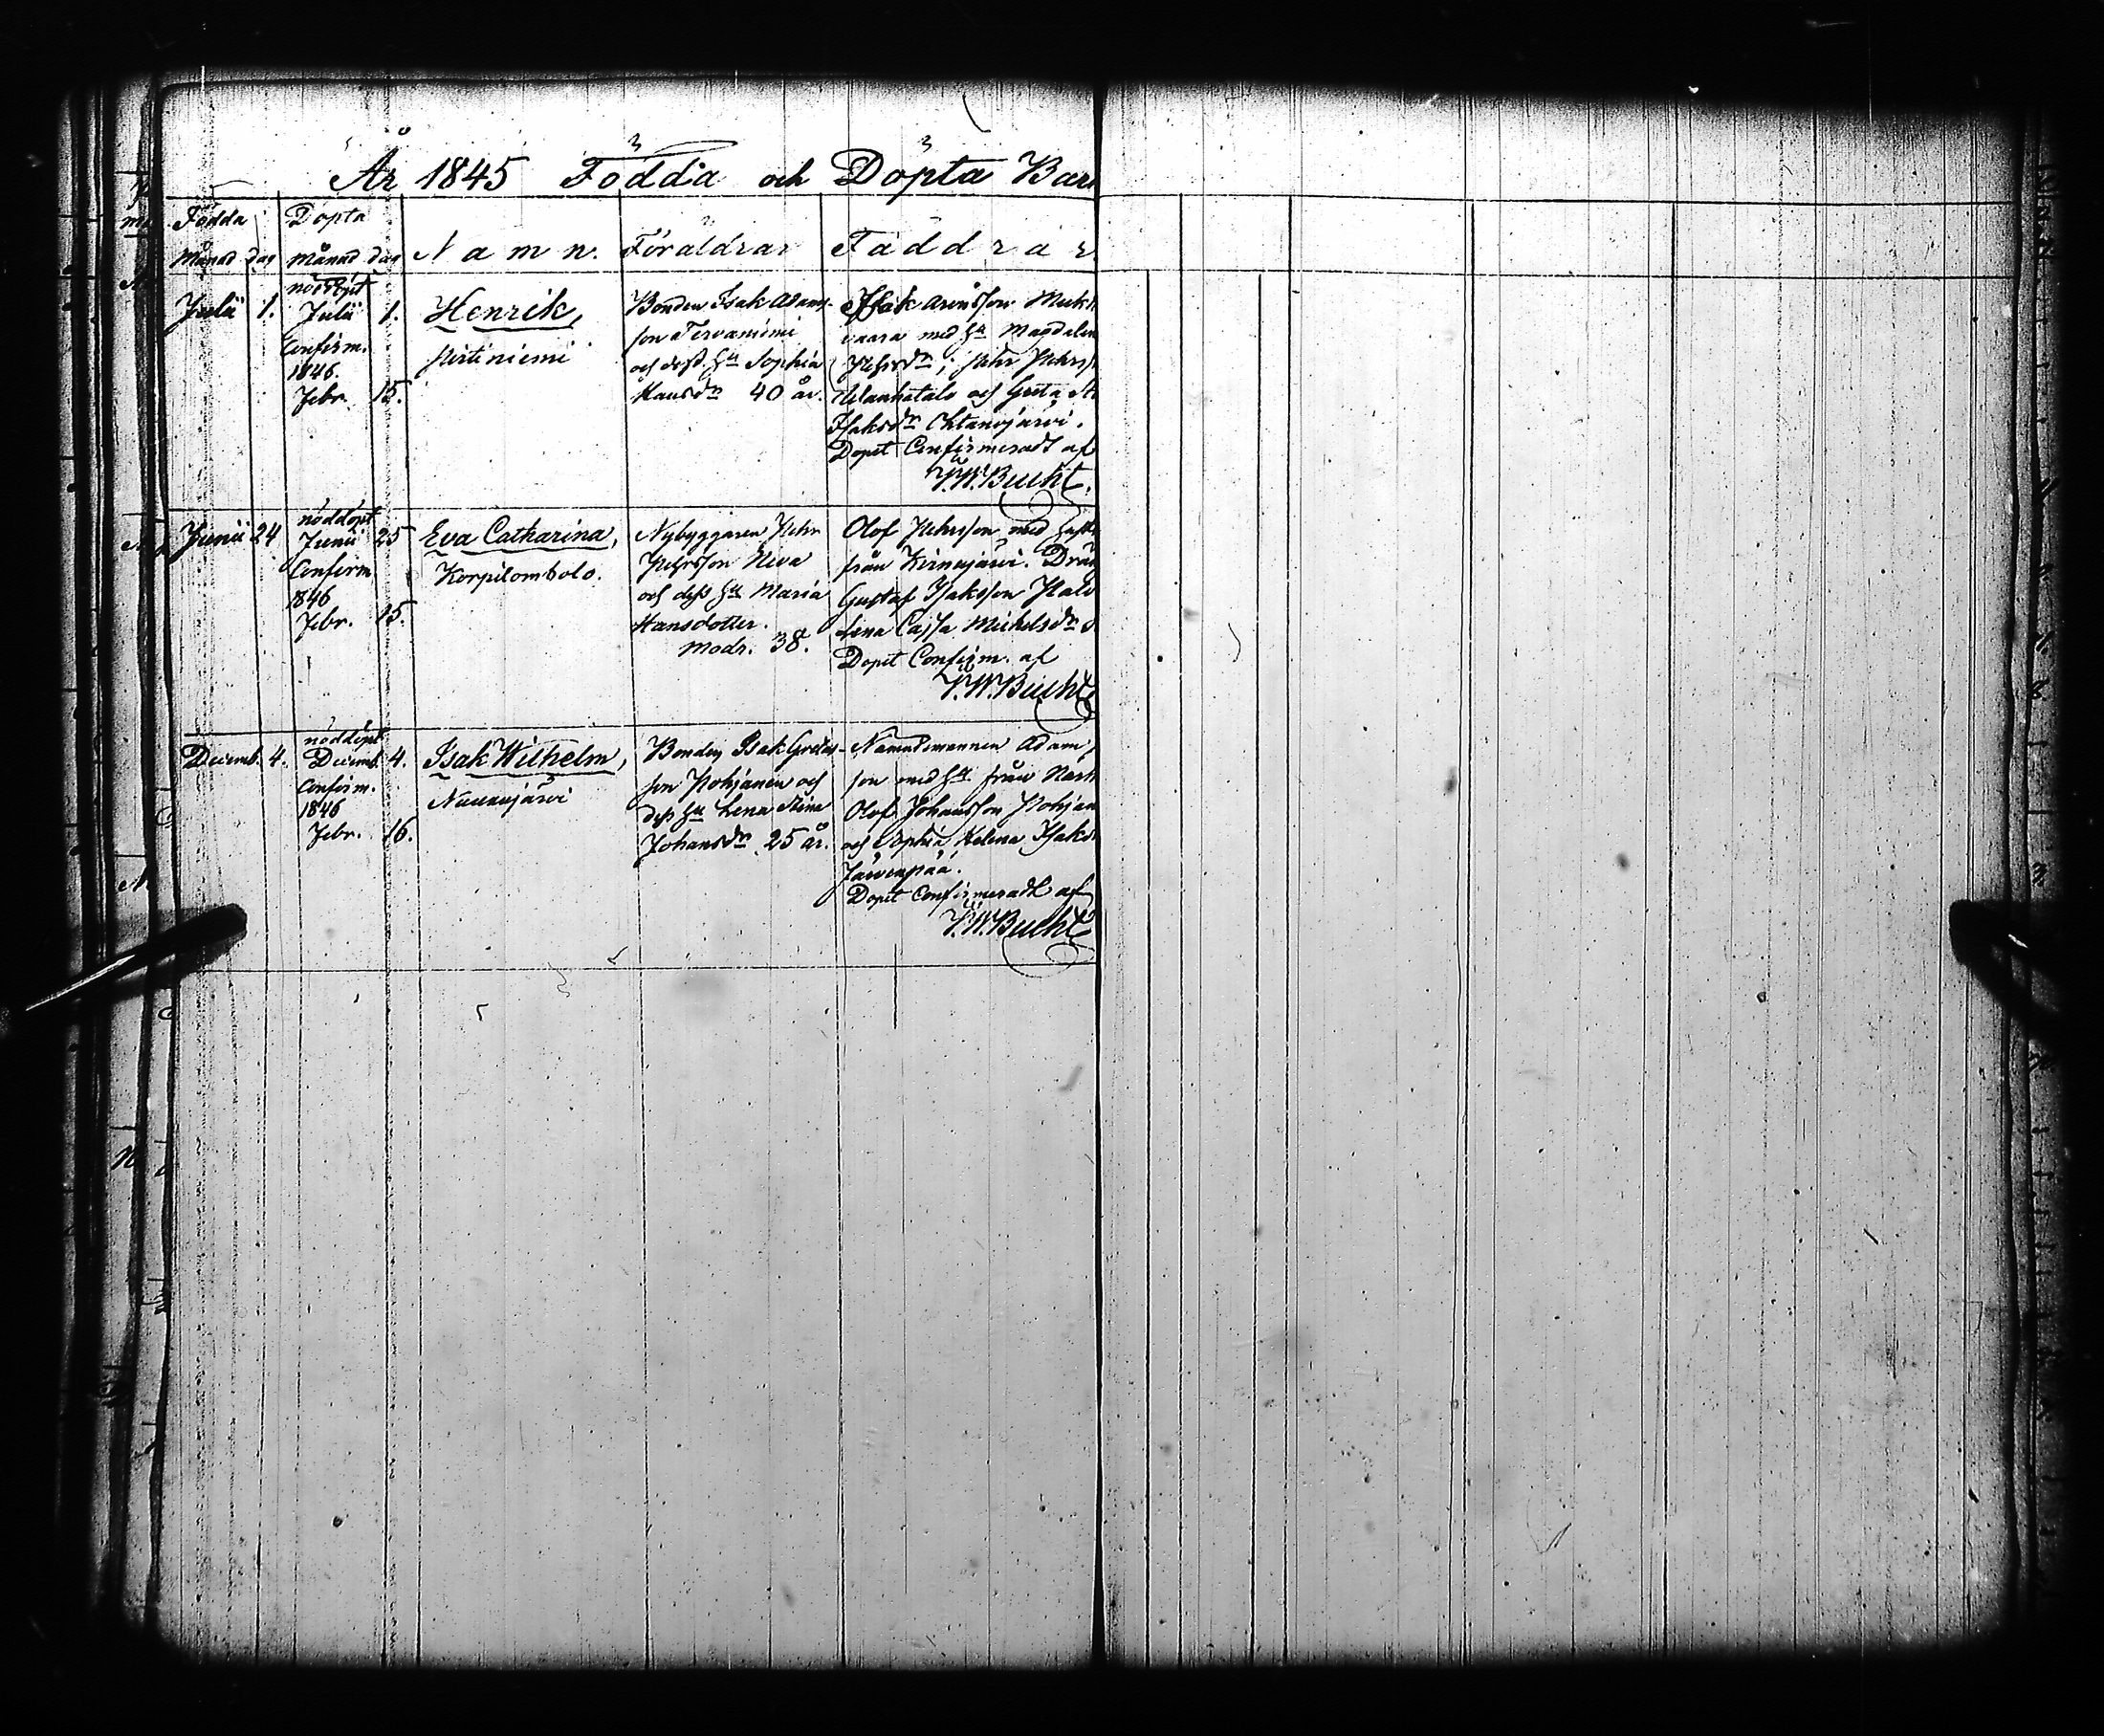 År 1845 Födda och Döpta Barn
Födda Döpta
Månad dag Månad dag Namn. Föräldrar Faddrar
Julii 1.
nöddöpt
Julii 1.
Confirm.
1846.
Febr. 15.
Henrik,
Pirttiniemi
Bonden Isak Adams-
son Tervaniemi
och dess hu Sophia
Hansdr 40 år.
Isak Aronsson
vaara med hu Magdalen
Pehrsdr; Pehr Pehrs
och Greta
Isaksdr Ohtanajärvi.
Dopet Confirmeradt af
P.W. Bucht.
Junii 24
nöddöpt
Junii 25
Confirm
1846
Febr. 15.
Eva Catharina,
Korpilombolo.
Nybyggaren Pehr
Pehrsson Niva
och dess hu Maria
Hansdotter.
Modr. 38.
Olof Pehrsson med hustr
från Kirnujärvi. Drän
Gustaf Isaksson Palo
Lena Cajsa Michelsdr
Dopet Confirm. af
P.W. Bucht
Decemb. 4.
nöddöpt
Decemb. 4.
Confirm.
1846
Febr. 16.
Isak Wilhelm,
Nuuanjärvi
Bonden Isak Gretas-
son Pohjanen och
dess hu Lena Stina
Johansdr 25 år.
Nämndemannen Adam
son med hu från
Olof Johansson Pohjan
och Sophia Helena Isaksd
Järvenpää.
Dopet Confirmeradt af
P.W. Bucht